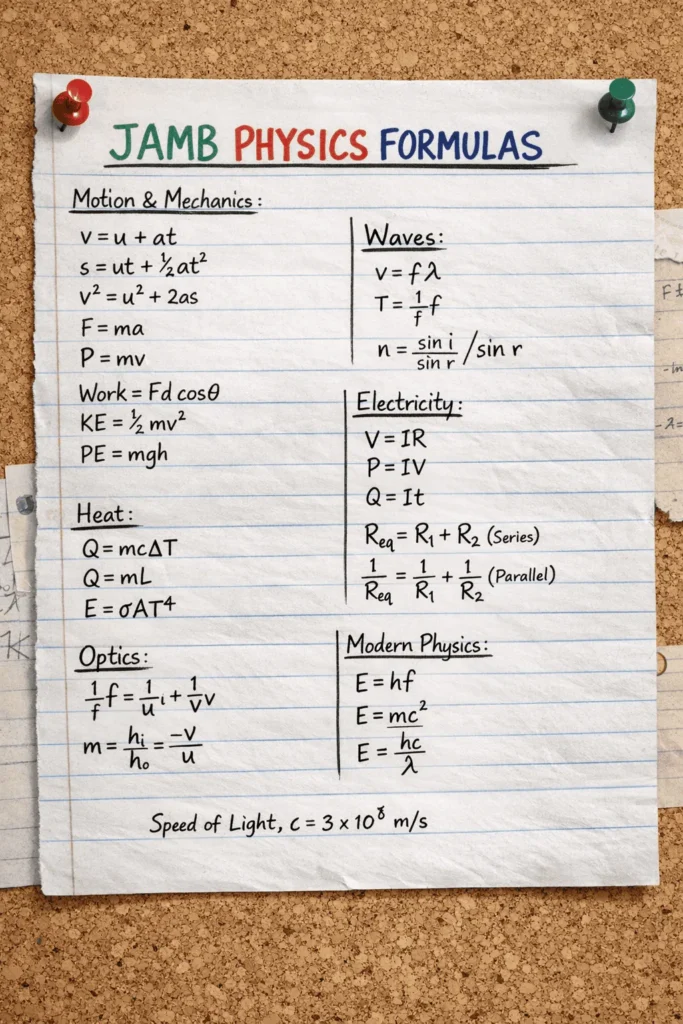 JAMB PHYSICS FORMULAS
Motion & Mechanics:
v = u + at
s = ut + ½at²
v² = u² + 2as
F = ma
P = mv
Work = Fd cosθ
KE = ½ mv²
PE = mgh
Heat:
Q = mcΔT
Q = mL
E = σAT⁴
Optics:
1/f f = 1/u ι + 1/v v
m = hᵢ/hₒ = -v/u
Waves:
v = fλ
T = 1/f f
n = sin i/sin r /sin r
Electricity:
V = IR
P = IV
Q = It
Req = R₁ + R₂ (Series)
1/Req = 1/R₁ + 1/R₂ (Parallel)
Modern Physics:
E = hf
E = mc²
E = hc/λ
Speed of Light, c = 3 x 10⁸ m/s